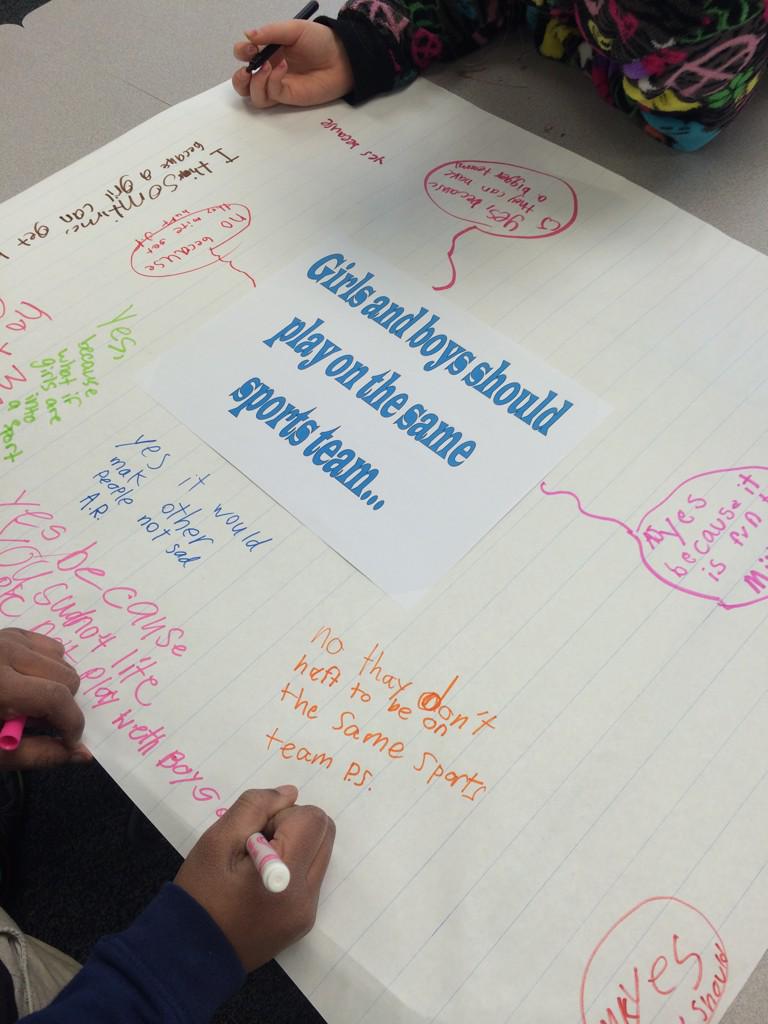 Girls and boys should
play on the same
sports team...
yes because
yes, because
they can have
a bigger team
CS
I think somtime.
because a gril can get
no
because
they mite get
hurt
yes,
because
what if
girls are
into
a sport
yes it would
mak other
people not sad
A.R.
yes because
you
not play weth Boys
no thay don't
haft to be on
the same sports
team P.S.
yes
because it
is fun
yes
should